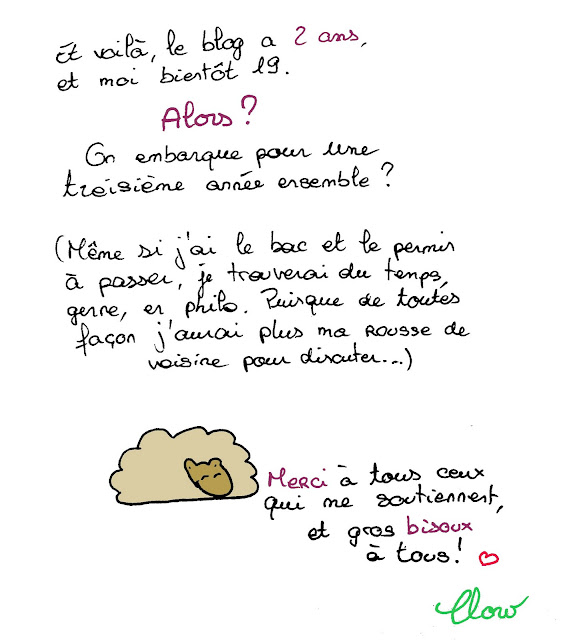 Et voilà, le blog a 2 ans,
et moi bientôt 19.
Alors ?
On embarque pour une
troisième année ensemble ?
(Même si j'ai le bac et le permis
à passer, je trouverai du temps,
genre, en philo. Puisque de toutes
façon j'aurai plus ma rousse de
voisine pour discuter...)
Merci à tous ceux
qui me soutiennent,
et gros bisoux
à tous !
Clow